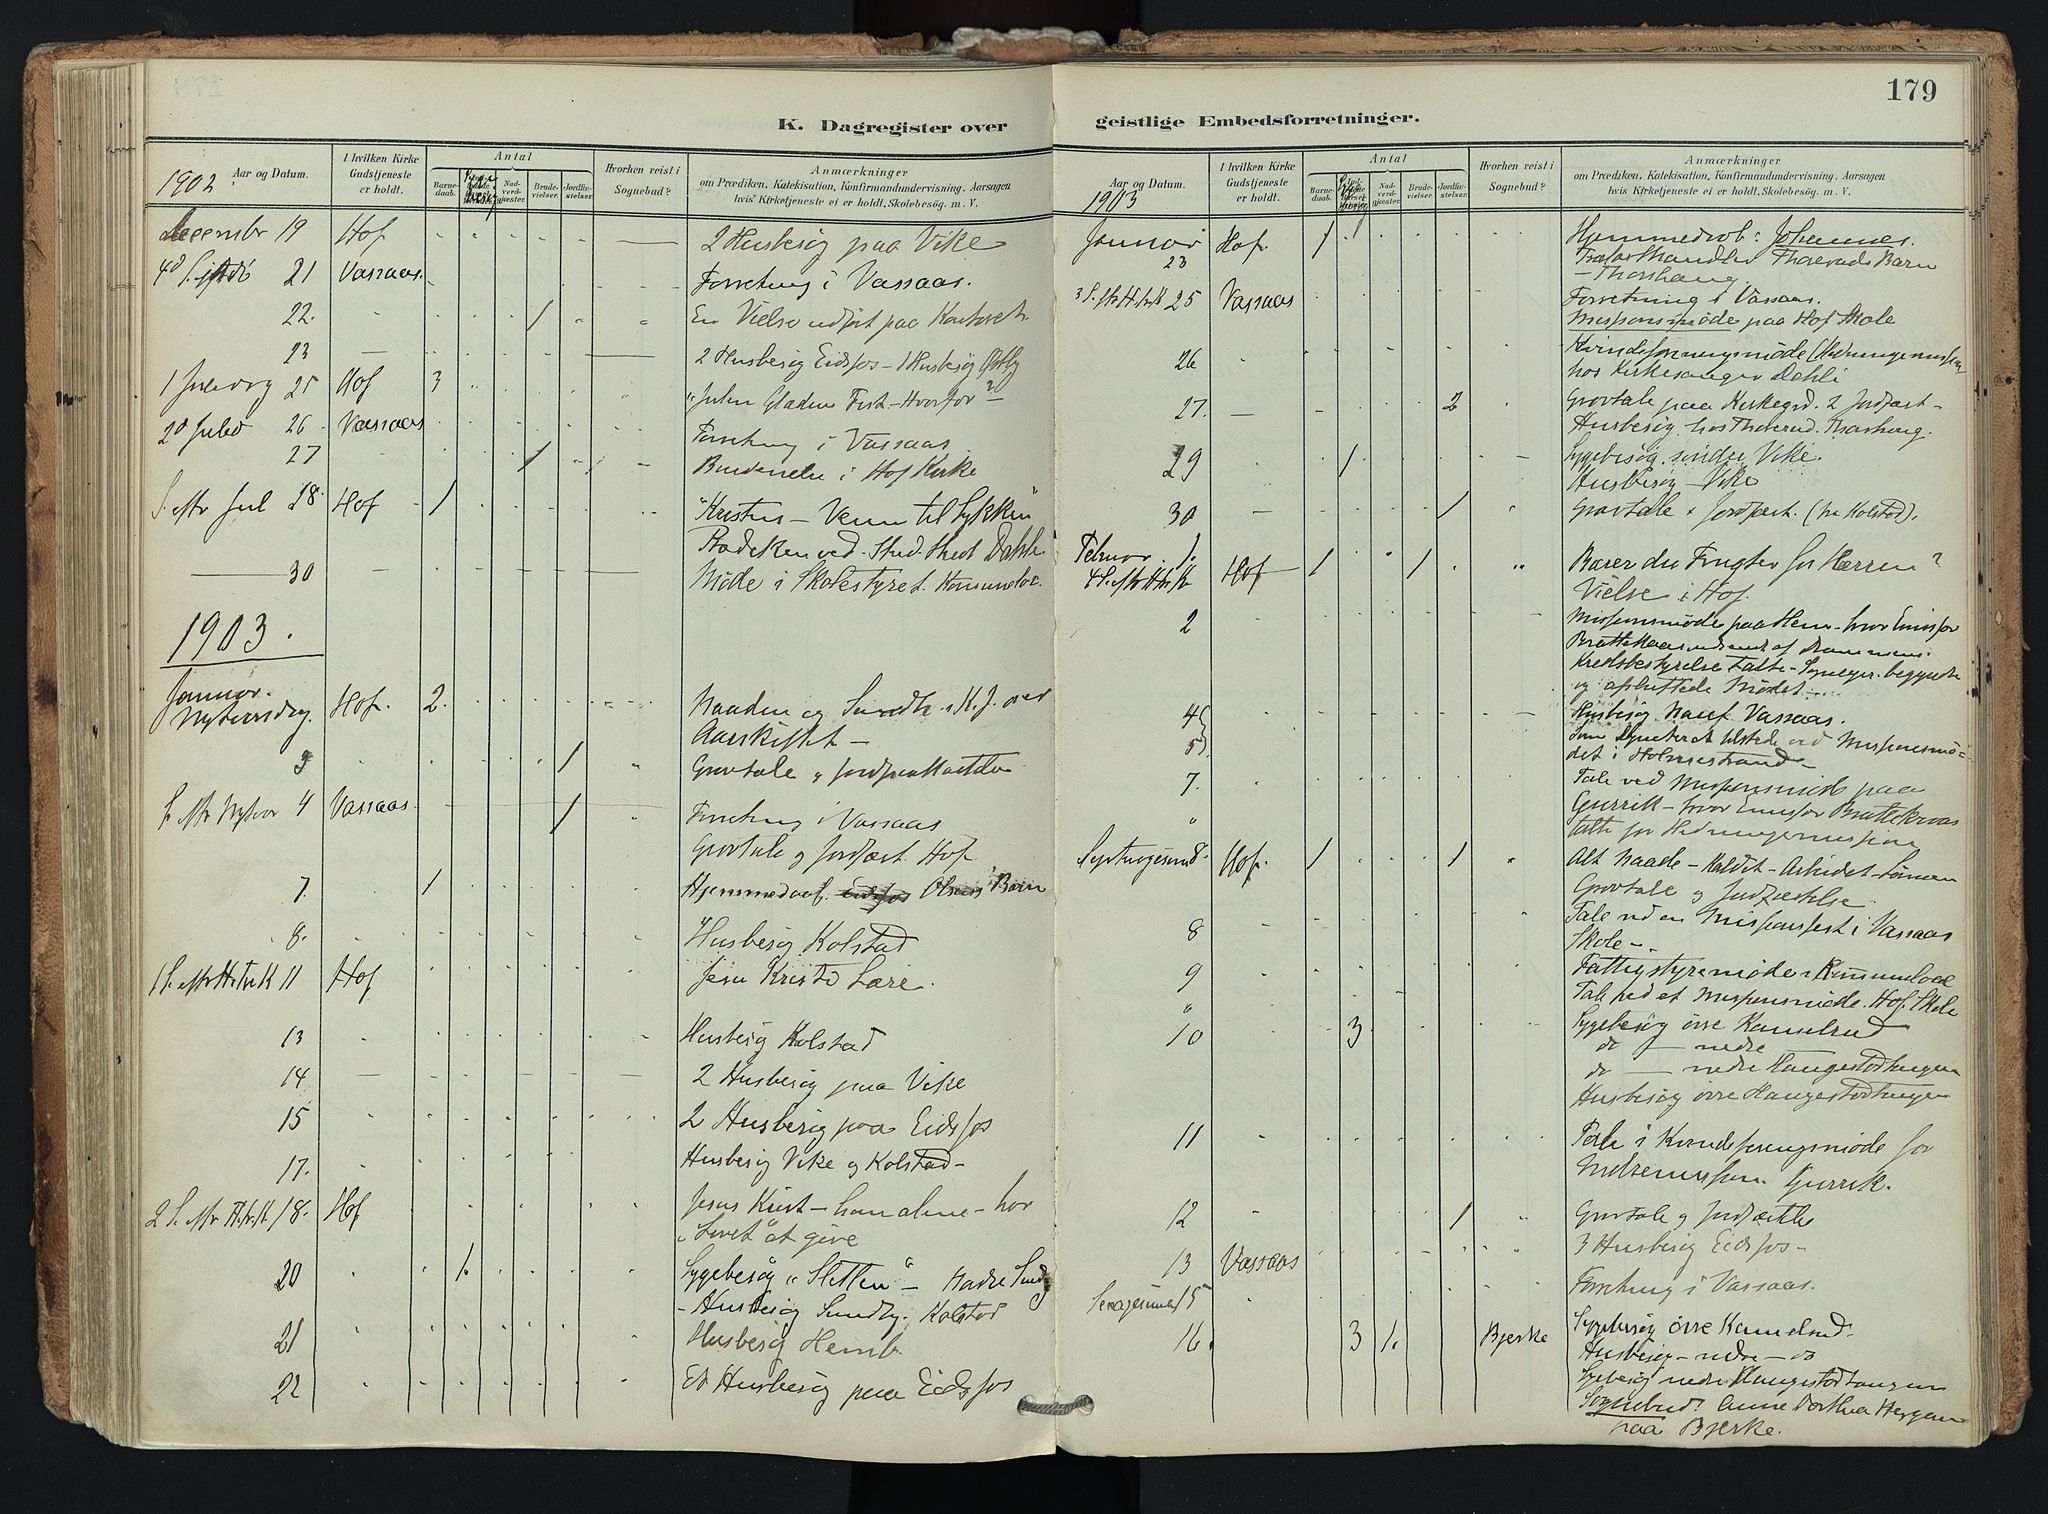 179
K. Dagregister over
geistlige Embedsforretninger.
1902 Aar og Datum.
I hvilken Kirke Gudstjeneste er holdt.
Antal
Barnedaab.
Brudevielser.
Jordfæstelser.
Hvorhen reist i Sognebud?
Anmærkninger
om Prædiken, Katekisation, Konfirmandundervisning, Aarsagen
hvis Kirketjeneste ei er holdt, Skolebesøg. m. V.
December 19 Hof 2 Husbesøg paa Vike
21 Vassaas. Forretning i Vassaas.
22. 1 En Vielse udført paa Kontoret.
23 2 Husbesøg Eidsfos – 1 Husbesøg
1 Juledag 25 Hof 3 "Julen Glædens Fest – Hvorfor?"
26 Vassaas Forretning i Vassaas
27 1 Brudevielse i Hof Kirke
S. eftr Jul 28. Hof 1 "Kristus – Venn til Lykken"
Prædiken ved Stud.
30 Møde i Skolestyret. Kommunelok.
1903.
Januar.
Nytaarsdag. Hof. 2. Naaden og Sandh. i K. J. ved
Aarskiftet –
3 1 Gravtale
S. eftr Nytaar 4 Vassaas. 1 Forretning i Vassaas
Gravtale og Jordfæst. Hof
7. 1 Hjemmedaab. Eidsfos Olsens Barn
8. Husbesøg Kolstad
1 S. eftr H. tr. K 11 Hof Jesu Kristi Lære.
13 Husbesøg Kolstad
14 2 Husbesøg paa Vike
15 2 Husbesøg paa Eidsfos
17. Husbesøg Vike og Kolstad –
2 S. eftr H. tr. K 18. Hof Jesus Krist – han alene – har
"Livet" at give
20 1. Sygebesøg "Sletten" –
– Husbesøg Sundby. Kolstad
21 Husbesøg Hemb
22 Et Husbesøg paa Eidsfos
1903
Aar og Datum.
I hvilken Kirke Gudstjeneste er holdt.
Antal
Barnedaab.
Brudevielser.
Jordfæstelser.
Hvorhen reist i Sognebud?
Anmærkninger
om Prædiken, Katekisation, Konfirmandundervisning, Aarsagen
hvis Kirketjeneste ei er holdt, Skolebesøg. m. V.
Januar 23 Hof. 1 Hjemmedaab: Johannes.
Barn
– Thorshaug
3 S. eftr H. tr. K 25 Vassaas Forretning i Vassaas.
Missionsmøde paa Hof Skole
26 Kvindeforeningsmøde (Hedningemission
hos Kirkesanger Dahli
27. 2 Gravtale paa Kirkegrd. 2 Jordfæst –
Husbesøg hos Thorrud. Thorshaug.
29 1 Sygebesøg søndre Vike.
Husbesøg – Vike
30 1 Gravtale & Jordfæst. (fra Kolstad).
Februar 1.
4 S. eftr H. tr. K Hof 1 1 Bærer du Frugter for Herren?
Vielse i Hof.
2 Missionsmøde paa Hem – hvor Emissær
Brattekaas udsendt af Drammens
Kredsbestyrelse Talte – Sogneprs. begyndte
og afsluttede Mødet –
4 Husbesøg Vassaas.
5 tilstede ved Missionsmø-
det i Holmestrand –
7. Tale ved Missionsmøde paa
" Gurrik – hvor Emissær Brattekaas
talte for Hedningemission
Septuagesima 8. Hof. 1 1 Alt Naade – Kaldet – Arbeidet – Lønnen
Gravtale og Jordfæstelse.
8 Tale ved en Missionsfest i Vassaas
Skole –
9 Fattigstyremøde i Kommunelok
" Tale ved et Missionsmøde. Hof Skole
10 3 Sygebesøg øvre Kamelrud
do — nedre
do — nedre Haugestadtangen
Husbesøg øvre Haugestadtangen
11 Tale i Kvindeforeningsmøde for
Gurrik.
12 1 Gravtale og Jordfæstelse
3 Husbesøg Eidsfos –
13 Vassaas Forretning i Vassaas.
Sexagesima 15
16. 3 1. Bjerke Sygebesøg øvre Kamelrud –
Husbesøg – nedre – do
Sygebesøg nedre Haugestadtangen
Sognebud: Anne Dorthea
paa Bjerke.